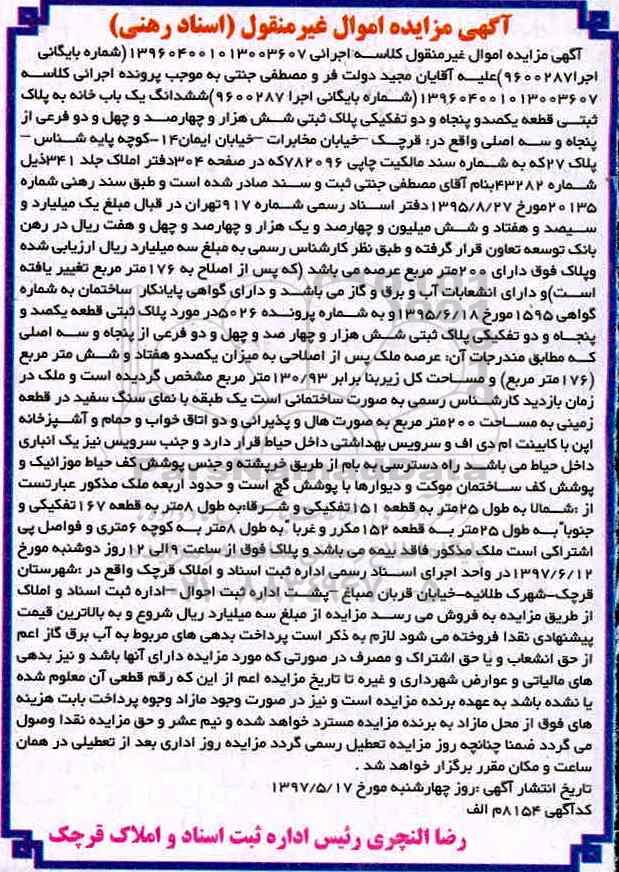 آگهی مزایده اموال غیرمنقول (اسناد رهنی)
آگهی مزایده اموال غیرمنقول کلاسه اجرائی ۱۳۹۶۰۴۰۰۱۰۱۳۰۰۳۶۰۷(شماره بایگانی
اجرا۹۶۰۰۲۸۷)علیه آقایان مجید دولت فر و مصطفی جنتی به موجب پرونده اجرائی کلاسه
۱۳۹۶۰۴۰۰۱۰۱۳۰۰۳۶۰۷(شماره بایگانی اجرا ۹۶۰۰۲۸۷)ششدانگ یک باب خانه به پلاک
ثبتی قطعه یکصدو پنجاه و دو تفکیکی پلاک ثبتی شش هزار و چهارصد و چهل و دو فرعی از
پنجاه و سه اصلی واقع در: قرچک –خیابان مخابرات –خیابان ایمان۱۴-کوچه پایه شناس –
پلاک ۲۷که به شماره سند مالکیت چاپی ۷۸۲۰۹۶که در صفحه ۳۰۴دفتر املاک جلد ۳۴۱ذیل
شماره ۴۳۲۸۲بنام آقای مصطفی جنتی ثبت و سند صادر شده است و طبق سند رهنی شماره
۲۰۱۳۵مورخ ۱۳۹۵/۸/۲۷دفتر اسناد رسمی شماره ۹۱۷تهران در قبال مبلغ یک میلیارد و
سیصد و هفتاد و شش میلیون و چهارصد و یک هزار و چهارصد و چهل و هفت ریال در رهن
بانک توسعه تعاون قرار گرفته و طبق نظر کارشناس رسمی به مبلغ سه میلیارد ریال ارزیابی شده
وپلاک فوق دارای ۲۰۰متر مربع عرصه می باشد (که پس از اصلاح به ۱۷۶متر مربع تغییر یافته
است)و دارای انشعابات آب و برق و گاز می باشد و دارای گواهی پایانکار ساختمان به شماره
گواهی ۱۵۹۵مورخ ۱۳۹۵/۶/۱۸و به شماره پرونده ۵۰۲۶در مورد پلاک ثبتی قطعه یکصد و
پنجاه و دو تفکیکی پلاک ثبتی شش هزار و چهار صد و چهل و دو فرعی از پنجاه و سه اصلی
که مطابق مندرجات آن: عرصه ملک پس از اصلاحی به میزان یکصدو هفتاد و شش متر مربع
(۱۷۶متر مربع) و مساحت کل زیربنا برابر ۱۳۰/۹۳متر مربع مشخص گردیده است و ملک در
زمان بازدید کارشناس رسمی به صورت ساختمانی است یک طبقه با نمای سنگ سفید در قطعه
زمینی به مساحت ۲۰۰متر مربع به صورت هال و پذیرائی و دو اتاق خواب و حمام و آشپزخانه
اپن با کابینت ام دی اف و سرویس بهداشتی داخل حیاط قرار دارد و جنب سرویس نیز یک انباری
داخل حیاط می باشد راه دسترسی به بام از طریق خرپشته و جنس پوشش کف حیاط موزائیک و
پوشش کف ساختمان موکت و دیوارها با پوشش گچ است و حدود اربعه ملک مذکور عبارتست
از :شمالا به طول ۲۵متر به قطعه ۱۵۱تفکیکی و شرقا:به طول ۸متر به قطعه ۱۶۷تفکیکی و
جنوبا"به طول ۲۵متر به قطعه ۱۵۲مکرر و غربا به طول ۸متر به کوچه ۶متری و فواصل پی
اشتراکی است ملک مذکور فاقد بیمه می باشد و پلاک فوق از ساعت ۹الی ۱۲روز دوشنبه مورخ
۱۳۹۷/۶/۱۲در واحد اجرای اسناد رسمی اداره ثبت اسناد و املاک قرچک واقع در :شهرستان
قرچک-شهرک طلائیه-خیابان قربان صباغ –پشت اداره ثبت احوال –اداره ثبت اسناد و املاک
از طریق مزایده به فروش می رسد مزایده از مبلغ سه میلیارد ریال شروع و به بالاترین قیمت
پیشنهادی نقدا فروخته می شود لازم به ذکر است پرداخت بدهی های مربوط به آب برق گاز اعم
از حق انشعاب و یا حق اشتراک و مصرف در صورتی که مورد مزایده دارای آنها باشد و نیز بدهی
های مالیاتی و عوارض شهرداری و غیره تا تاریخ مزایده اعم از این که رقم قطعی آن معلوم شده
یا نشده باشد به عهده برنده مزایده است و نیز در صورت وجود مازاد وجوه پرداخت بابت هزینه
های فوق از محل مازاد به برنده مزایده مسترد خواهد شده و نیم عشر و حق مزایده نقدا وصول
می گردد ضمنا چنانچه روز مزایده تعطیل رسمی گردد مزایده روز اداری بعد از تعطیلی در همان
ساعت و مکان مقرر برگزار خواهد شد .
تاریخ انتشار آگهی :روز چهارشنبه مورخ ۱۳۹۷/۵/۱۷
کدآگهی ۸۱۵۴م الف
رضا النچری رئیس اداره ثبت اسناد و املاک قرچک